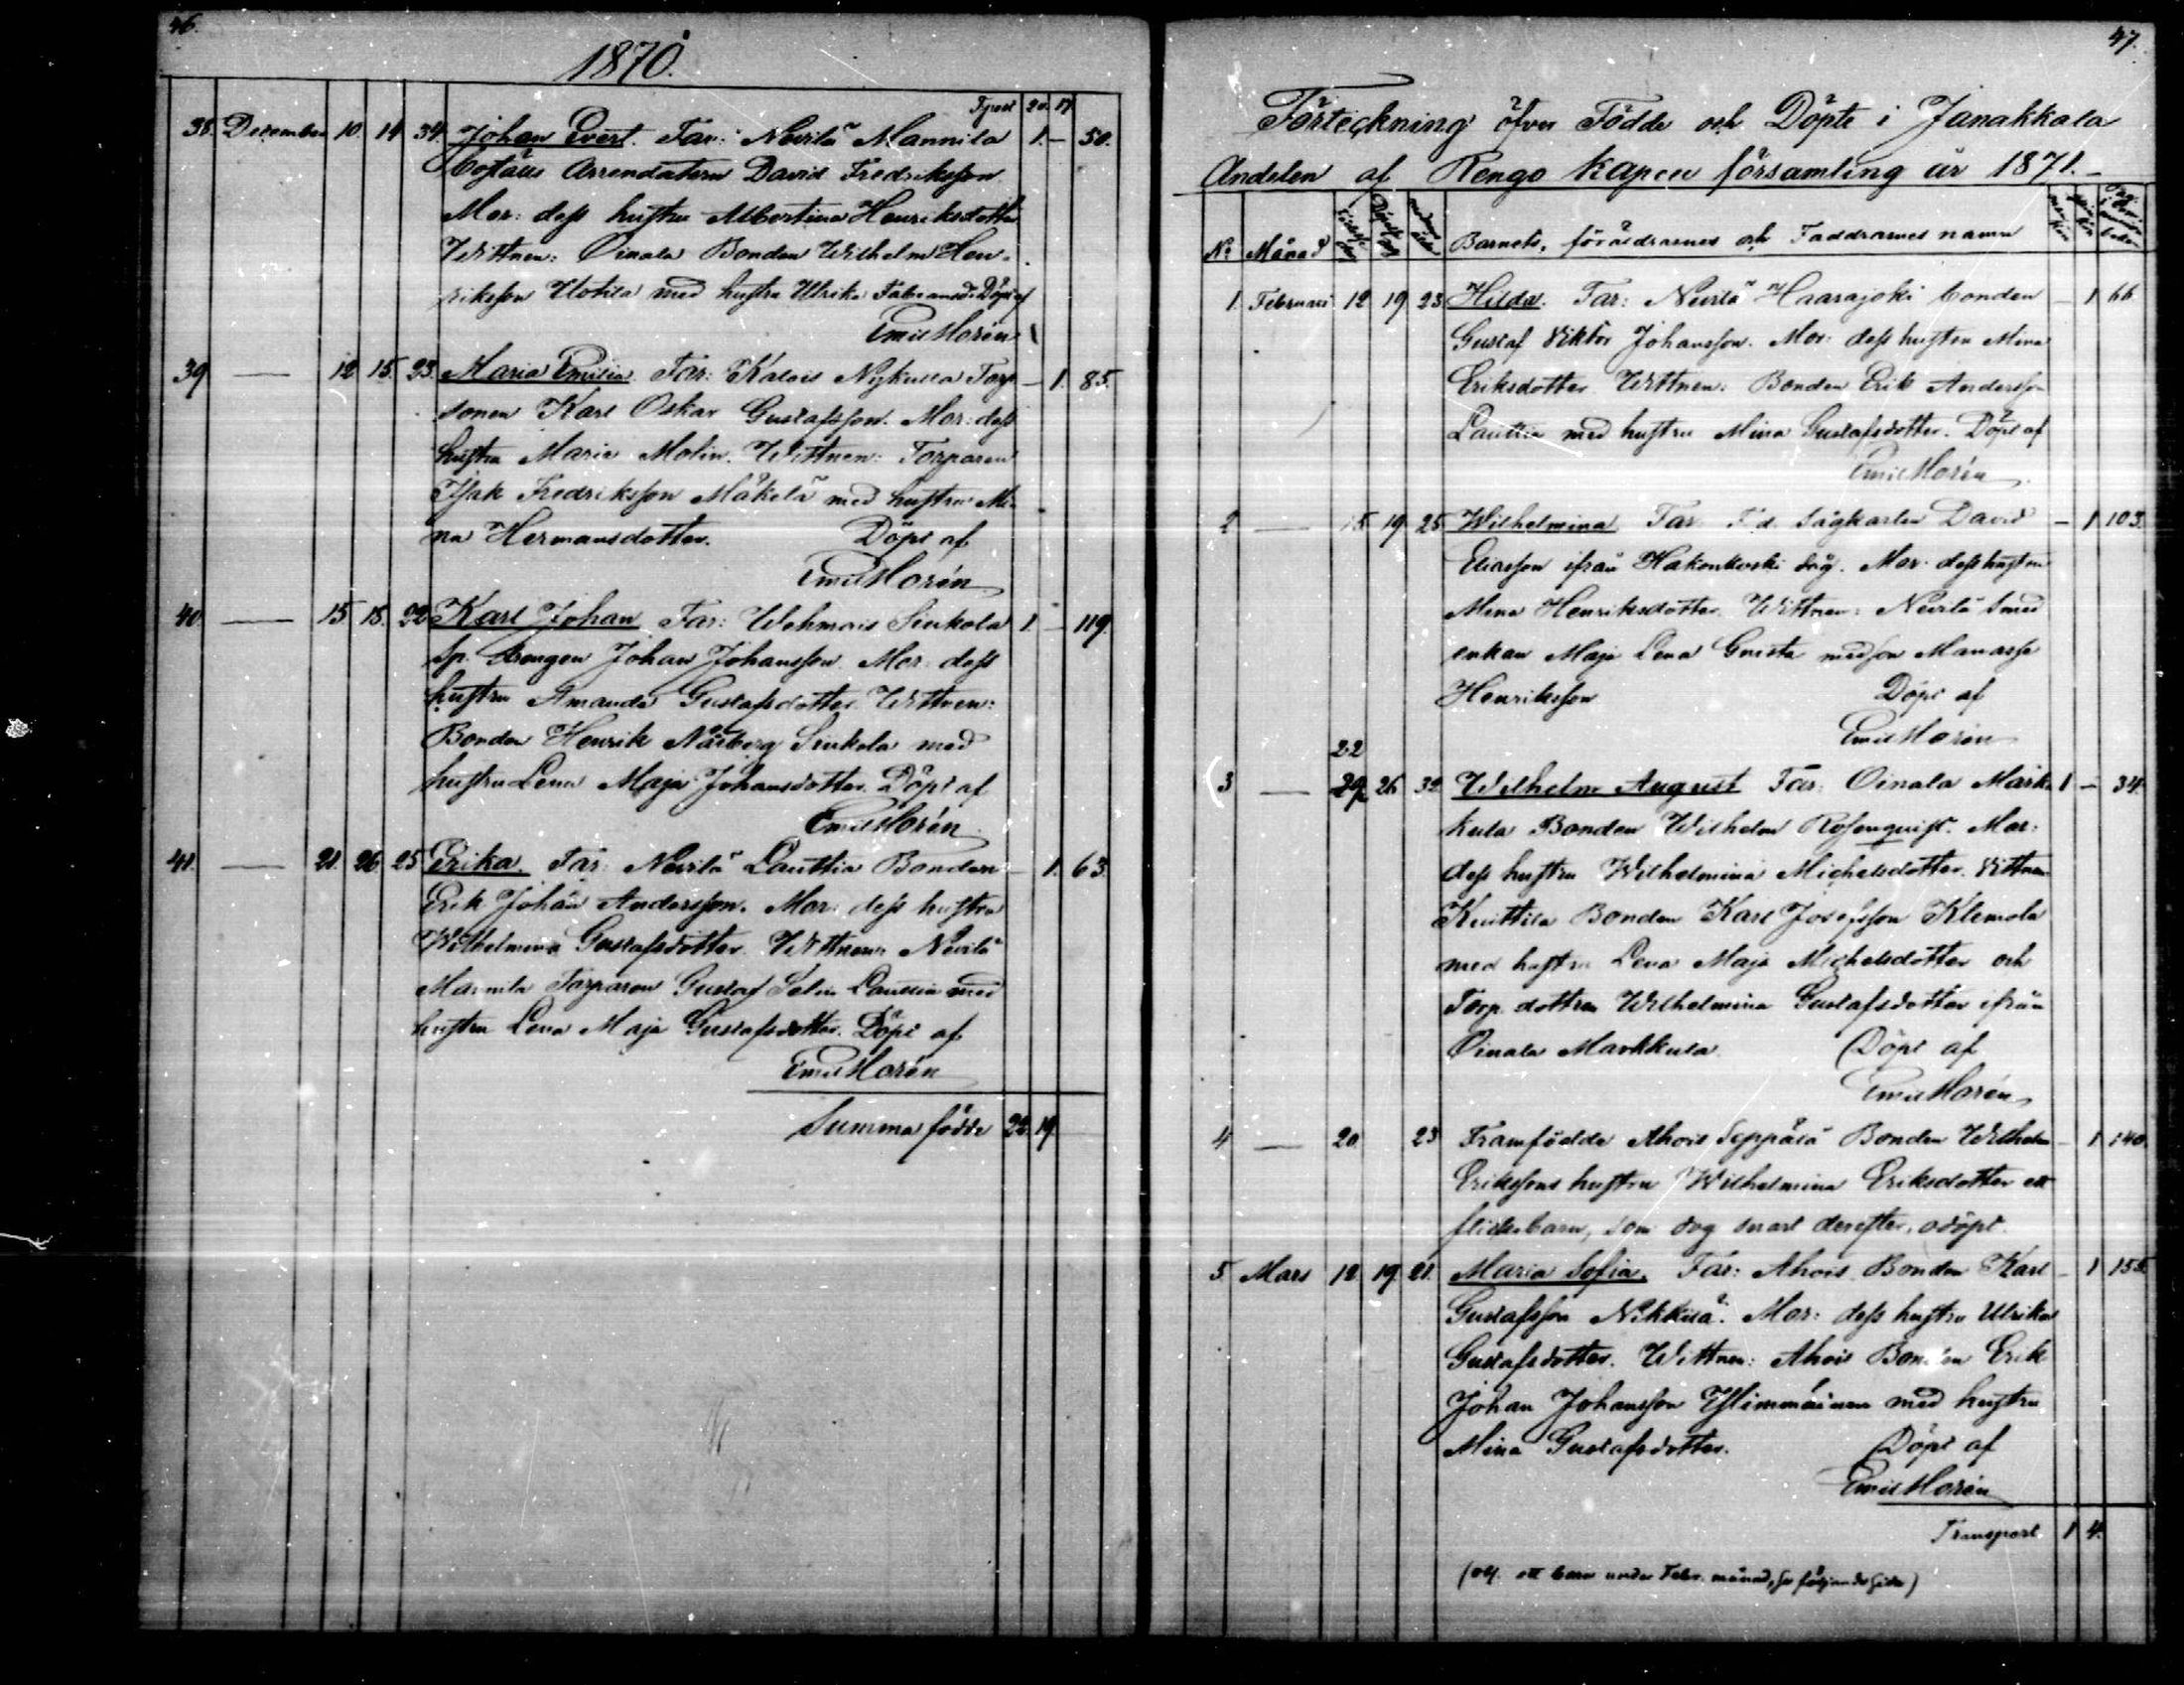 46.
1870.
Tpost 20. 17.
38. December 10. 14 34. Johan Evert. Far: Nevilä Mannila 1. — 50.
Arrendatorn David Fredriksson
Mor: dess hustru Albertina Henriksdotter
Wittnen: Oinala Bonden Wilhelm Hen-
riksson Uotila med hustru Ulrika Fabiansd. Döpt af
Emil Horén
39 — 12 15. 23. Maria Emilia. Far: Kalois Nykulla Torp- — 1. 85.
sonen Karl Oskar Gustafsson. Mor: dess
hustru Maria Molin. Wittnen: Torparen
Isak Fredriksson Mäkelä med hustru Mi-
na Hermansdotter. Döpt af
Emil Horén
40. — 15 18. 22 Karl Johan Far: Wehmais Sinkola 1. — 119.
Sp. Drengen Johan Johansson. Mor: dess
hustru Amanda Gustafsdotter. Wittnen:
Bonden Henrik Närberg Sinkola med
hustru Lena Maja Johansdotter. Döpt af
Emil Horén.
41. — 21. 26 25 Erika. Far: Nevilä Lauttia Bonden — 1. 63.
Erik Johan Andersson. Mor: dess hustru
Wilhelmina Gustafsdotter. Wittnen: Nevilä
Mannila Torparen Gustaf Selin Lauttia med
hustru Lena Maja Gustafsdotter. Döpt af
Emil Horén
Summa födde 22. 19.
47.
Förteckning öfver Födde och Döpte i Janakkala
Andelen af Rengo kapell församling år 1871.
No Månad Barnets, föräldrarnes och Faddrarnes namn
1. Februari 12 19 23 Hilda. Far: Nevilä Haarajoki bonden — 1 66.
Gustaf Viktor Johansson. Mor: dess hustru Mina
Eriksdotter Wittnen: Bonden Erik Andersson
Lauttia med hustru Mina Gustafsdotter. Döpt af
Emil Horén
2 — 15 19 25 Wilhelmina Far: F.d. Sågkarlen David — 1 103.
Eliasson ifrån Hakonkoski såg. Mor: dess hustru
Mina Henriksdotter. Wittnen: Nevilä Smed
enkan Maja Lena Gnista med son Manasse
Henriksson Döpt af
Emil Horén
22
3 — 29 26 32 Wilhelm August Far: Oinala Mark- 1 — 34.
kula Bonden Wilhelm Rosenquist. Mor:
dess hustru Wilhelmina Michelsdotter. Vittnen
Kuittila Bonden Karl Josefsson Klemola
med hustru Lena Maja Michelsdotter och
Torp. dottren Wilhelmina Gustafsdotter ifrån
Oinala Markkula. Döpt af
Emil Horén
4 — 20 23 Framfödde Ahois Seppälä Bonden Wilhelm — 1 140.
Erikssons hustru Wilhelmina Eriksdotter ett
flickebarn, som dog snart derefter, odöpt.
5. Mars 12. 19. 21. Maria Sofia. Far: Ahois Bonden Karl — 1 155
Gustafsson Nikkilä. Mor: dess hustru Ulrika
Gustafsdotter. Wittnen: Ahois Bonden Erik
Johan Johansson Ylimmäinen med hustru
Mina Gustafsdotter. Döpt af
Emil Horén
Transport 1 4.
(obs. ett barn under Febr. månad, se följande sida)